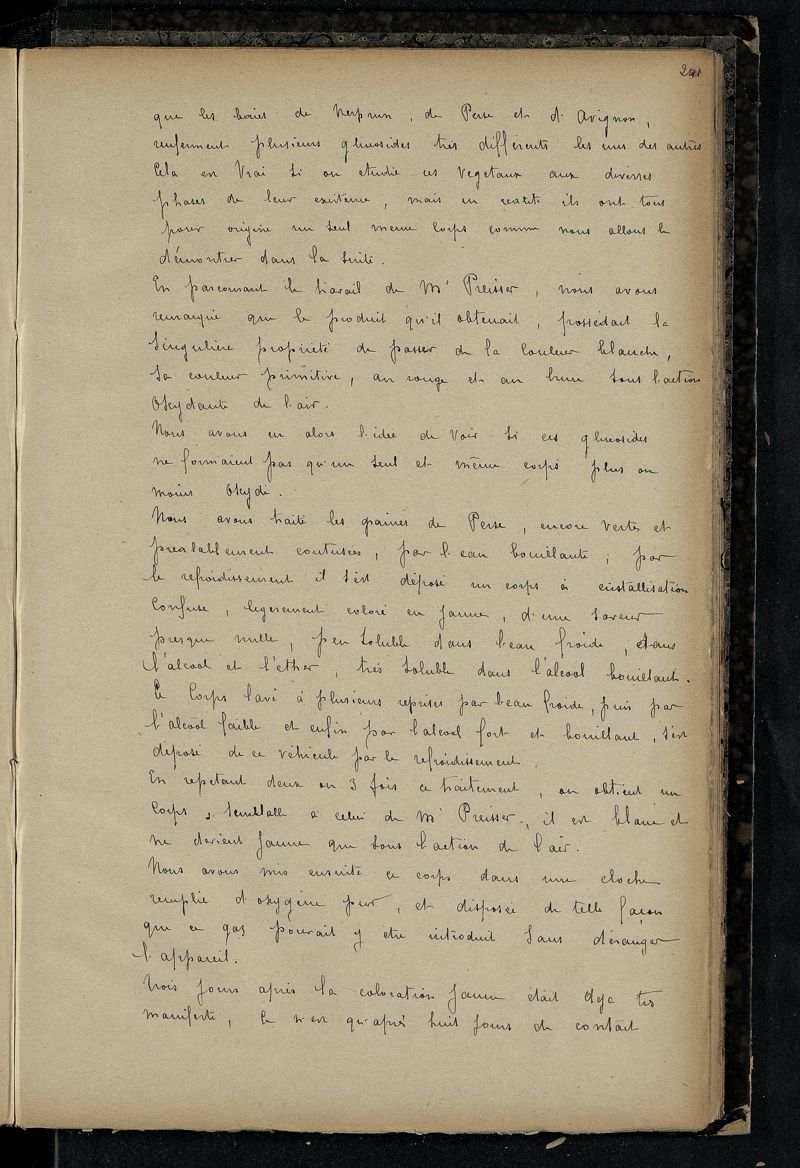 241
que les baies de Nerprun, de Perse et d'Avignon,
renferment plusieurs glucosides très différents les uns des autres
Cela est Vrai si on etudie ces Vegetaux aux diverses
phases de leur existence, mais en réalité ils ont tous
pour origine un seul meme Corps comme nous allons le
démontrer dans la suite.
En parcourant le travail de Mr Preisser, nous avons
remarqué que le produit qu'il obtenait, possédait la
Singulière propriété de passer de la Couleur blanche,
sa couleur primitive, au rouge et au brun sous l'action
Oxydante de l'air.
Nous avons eu alors l'idée de Voir si ces glucosides
ne formaient pas qu'un seul et même corps plus ou
moins Oxydé.
Nous avons traité les graines de Perse, encore Vertes et
préalablement contusées, par l'eau bouillante; par
le refroidissement il s'est déposé un corps à cristallisation
Confuse, légerement coloré en jaune, d'une saveur
presque nulle, peu soluble dans l'eau froide, dans
l'alcool et l'éther, très soluble dans l'alcool bouillant.
Ce Corps lavé à plusieurs reprises par l'eau froide, puis par
l'alcool faible et enfin par l'alcool fort et bouillant, s'est
déposé de ce véhicule par le refroidissement.
En repetant deux ou 3 fois ce traitement, on obtient un
Corps, semblable à celui de Mr Preisser, il est blanc et
ne devient Jaune que sous l'action de l'air.
Nous avons mis ensuite ce corps dans une cloche
remplie d'oxygène pur, et disposée de telle façon
que ce gaz pouvait y etre introduit sans déranger
l'appareil.
Trois Jours après la coloration Jaune était deja très
manifeste, Ce n'est qu'après huit Jours de contact